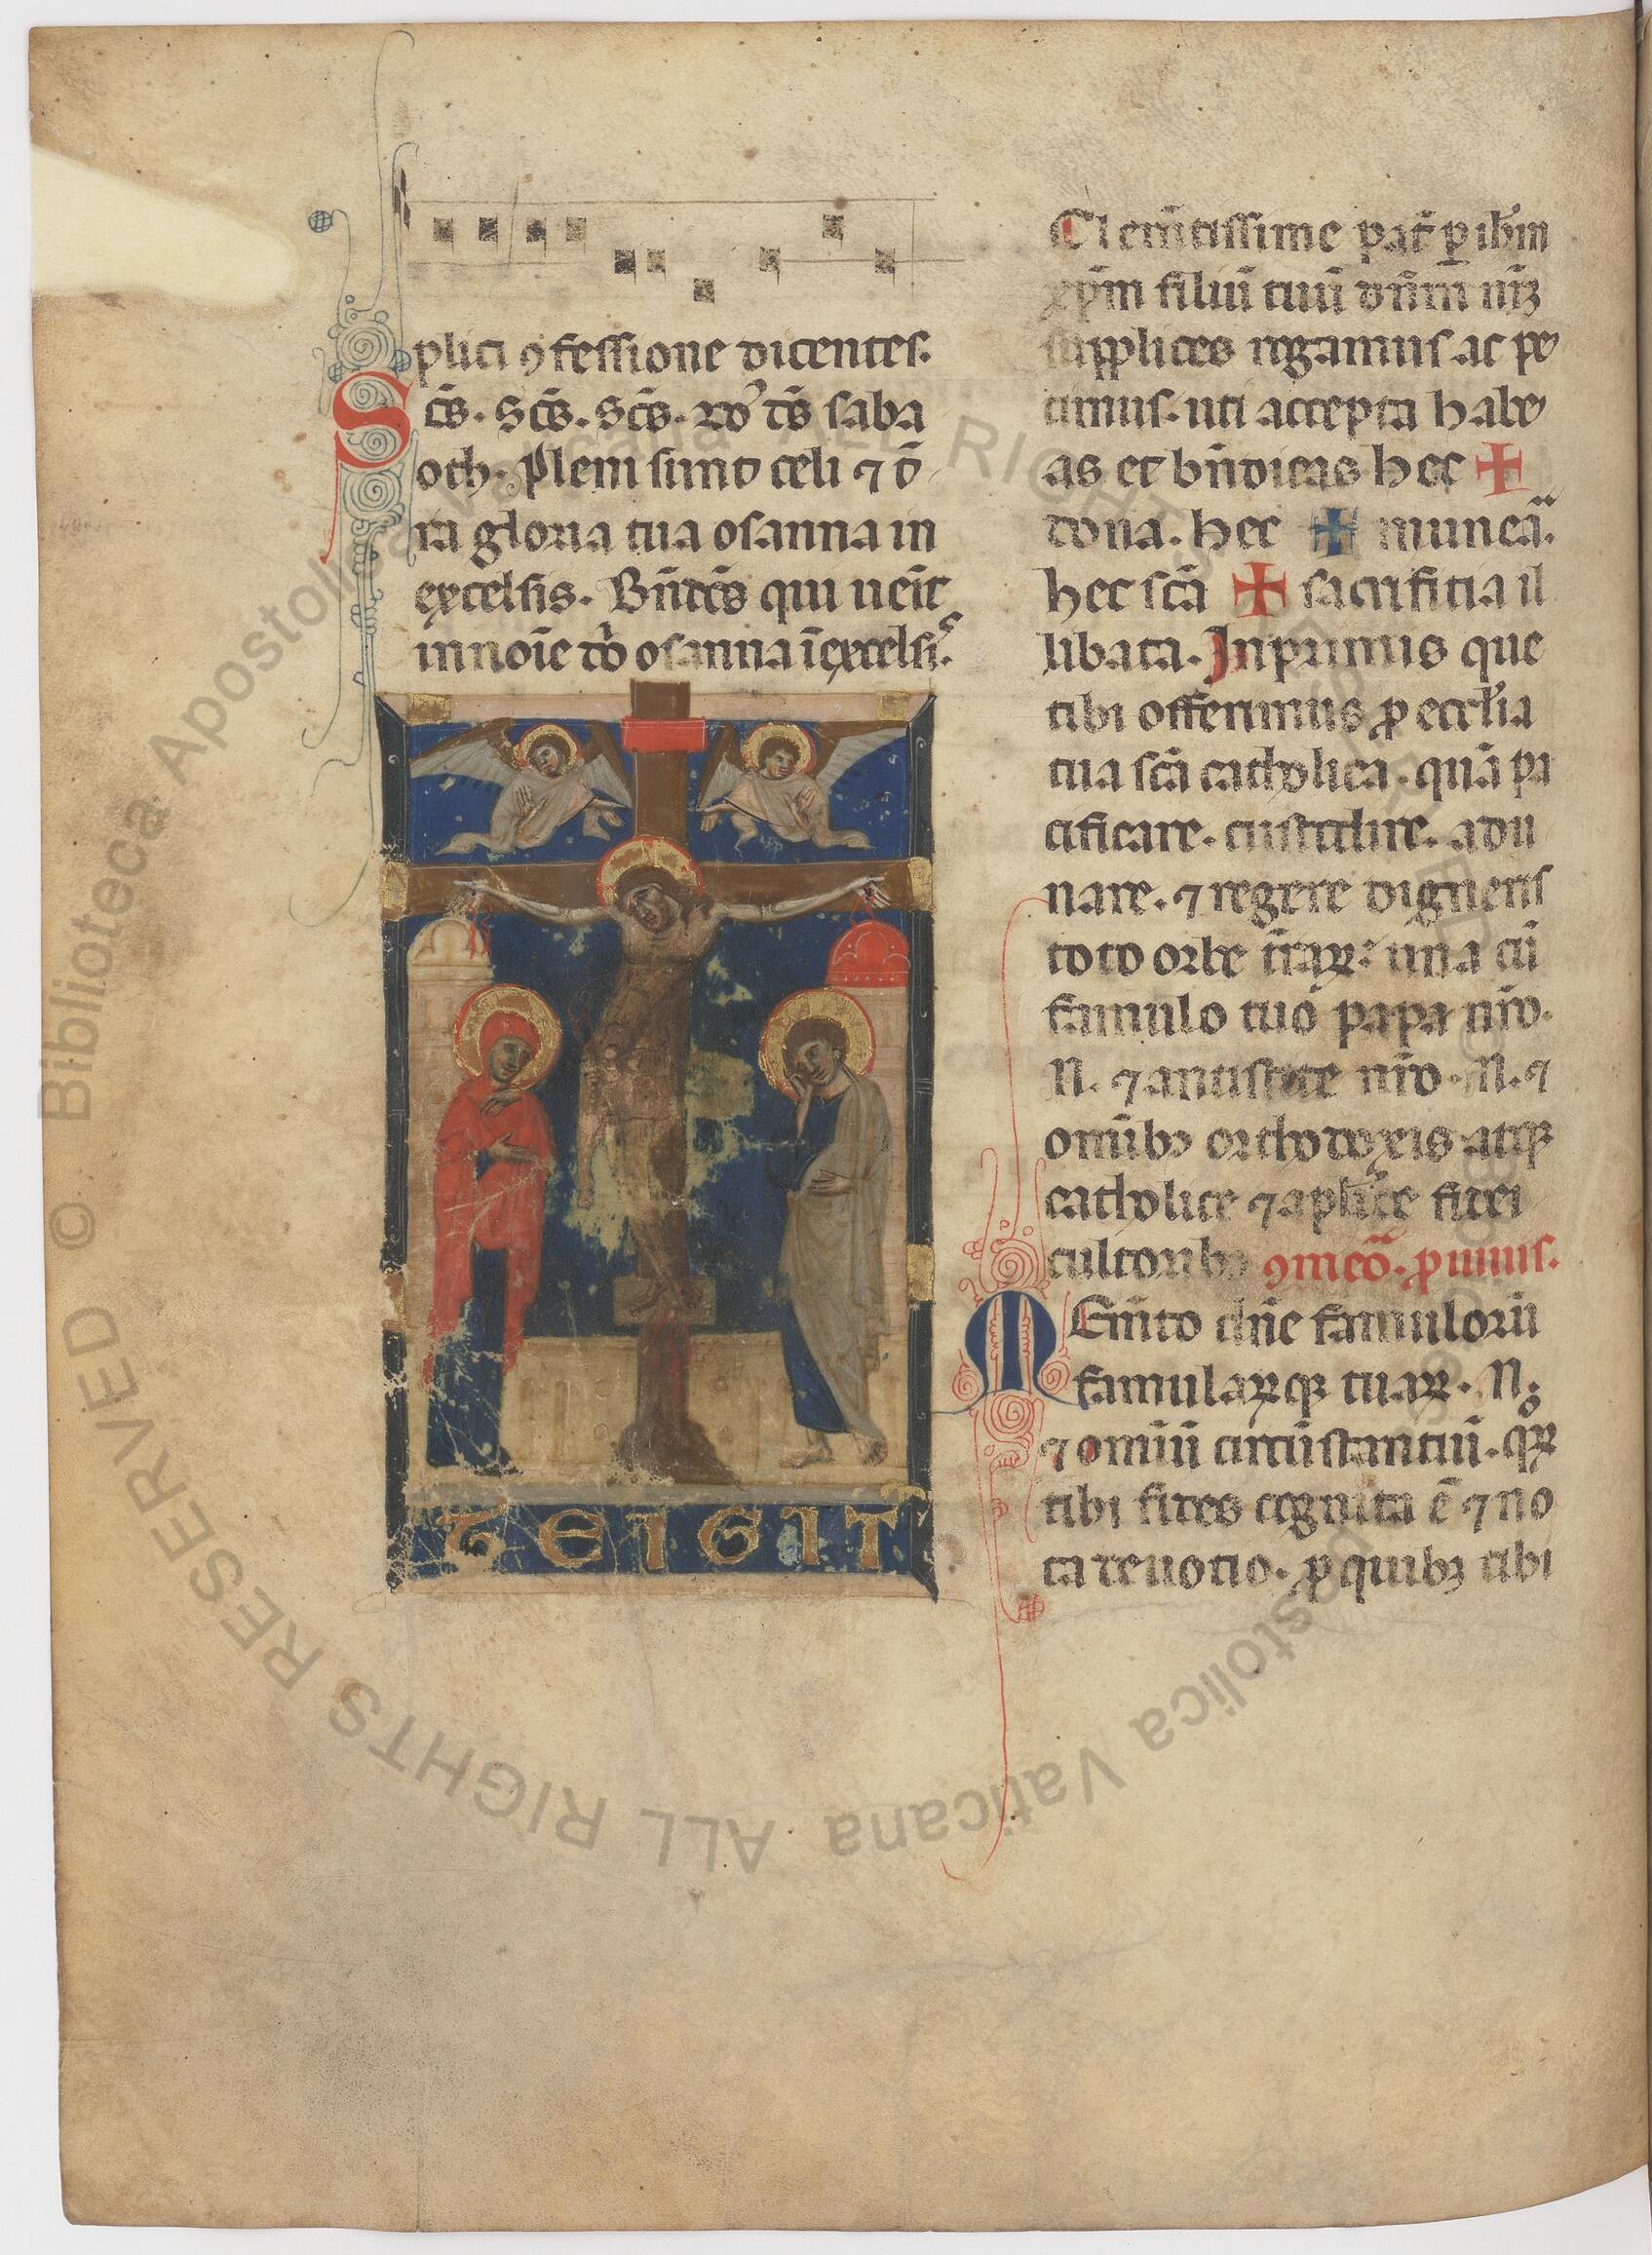 plici ꝯfessione dicentes.
Scs̄. Scs̄. Scs̄. dn̄s ds̄ saba
oth. Pleni sunt celi ⁊ t̄
ra gloria tua osanna in
excelsis. Bn̄dcs̄ qui ueit̄
in noīe dn̄i osanna ī excelsis.
TEIGIT
Clem̄tissime pat̄ ꝑ ih̄m
xp̄m filiū tuū dn̄m nr̄ꝫ
supplices rogamus ac pe
timus. uti accepta habe
as et bn̄dicas hec ✠
dona. hec ✠ munera.
hec sc̄a ✠ sacrificia il
libata. Inprimis que
tibi offerimus ꝓ eccl̄ia
tua sc̄a catholica. quā pa
cificare. custodire. adu
nare. ⁊ regere digneris
toto orbe t̄raꝝ: una cū
famulo tuo papa nr̄o.
N. ⁊ antistite nr̄o. N. ⁊
omībꝰ orthodoxis atqꝫ
catholice ⁊ aplīce fidei
cultoribꝰ ꝯmeō. primus.
Mem̄to dn̄e famuloꝝ
famularꝝqꝫ tuaꝝ. N.
⁊ omīū circūstantiū. qͦꝝ
tibi fides cognita ē ⁊ no
ta deuotio. ꝓ quibꝫ tibi
© Biblioteca Apostolica Vaticana ALL RIGHTS RESERVED